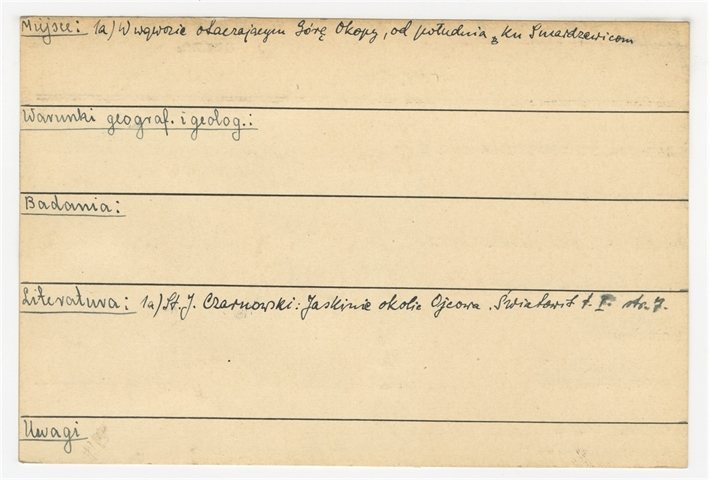 Miejsce: 1a) W wąwozie otaczającym Górę Okopy, od południa, ku Smardzewicom
Warunki geograf. i geolog.:
Badania:
Literatura: 1a) St. J. Czarnowski: Jaskinie okolic Ojcowa. Światowit t. I. str. 7.
Uwagi